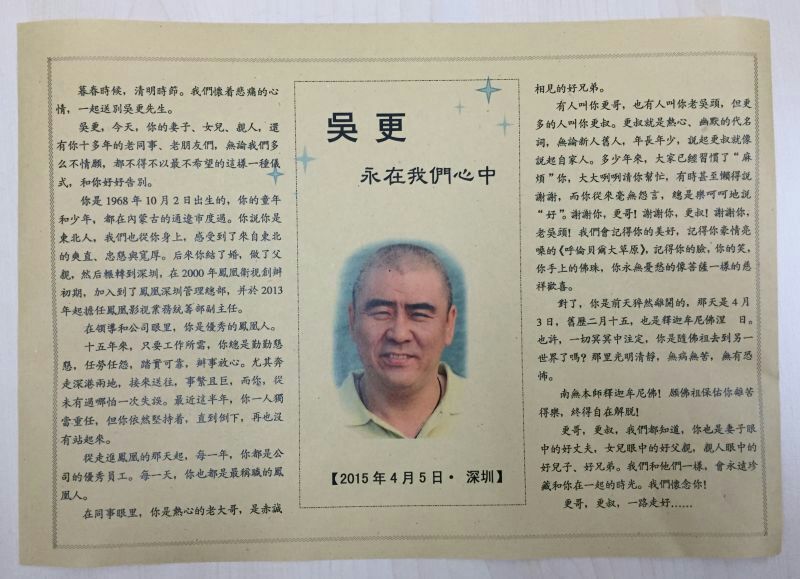 暮春時候，清明時節。我們懷着悲痛的心
情，一起送別吳更先生。
吳更，今天，你的妻子、女兒、親人，還
有你十多年的老同事、老朋友們，無論我們多
麽不情願，都不得不以最不希望的這樣一種儀
式，和你好好告別。
你是 1968 年 10 月 2 日出生的，你的童年
和少年，都在內蒙古的通遼市度過。你說你是
東北人，我們也從你身上，感受到了來自東北
的爽直、忠懇與寬厚。后來你結了婚，做了父
親，然后輾轉到深圳，在 2000 年鳳凰衛視創辦
初期，加入到了鳳凰深圳管理總部，并於 2013
年起擔任鳳凰影視業務統籌部副主任。
在領導和公司眼里，你是優秀的鳳凰人。
十五年來，只要工作所需，你總是勤勤懇
懇，任勞任怨，踏實可靠，辦事放心。尤其奔
走深港兩地，接來送往，事繁且巨，而你，從
未有過哪怕一次失誤。最近這半年，你一人獨
當重任，但你依然堅持着，直到倒下，再也沒
有站起來。
從走進鳳凰的那天起，每一年，你都是公
司的優秀員工。每一天，你也都是最稱職的鳳
凰人。
在同事眼里，你是熱心的老大哥，是赤誠
吳更
永在我們心中
【2015 年 4 月 5 日· 深圳】
相見的好兄弟。
有人叫你更哥，也有人叫你老吳頭，但更
多的人叫你更叔。更叔就是熱心、幽默的代名
詞，無論新人舊人，年長年少，說起更叔就像
說起自家人。多少年來，大家已經習慣了“麻
煩”你，大大咧咧請你幫忙，有時甚至懶得說
謝謝，而你從來毫無怨言，總是樂呵呵地說
“好”。謝謝你，更哥！謝謝你，更叔！謝謝你，
老吳頭！我們會記得你的美好，記得你豪情亮
嗓的《呼倫貝爾大草原》，記得你的臉，你的笑，
你手上的佛珠，你永無憂愁的像菩薩一樣的慈
祥歡喜。
對了，你是前天猝然離開的，那天是 4 月
3 日，舊歷二月十五，也是釋迦牟尼佛涅 日。
也許，一切冥冥中注定，你是隨佛祖去到另一
世界了嗎？那里光明清靜，無病無苦，無有恐
怖。
南無本師釋迦牟尼佛！願佛祖保佑你離苦
得樂，終得自在解脫！
更哥，更叔，我們都知道，你也是妻子眼
中的好丈夫，女兒眼中的好父親，親人眼中的
好兒子、好兄弟。我們和他們一樣，會永遠珍
藏和你在一起的時光。我們懷念你！
更哥，更叔，一路走好……